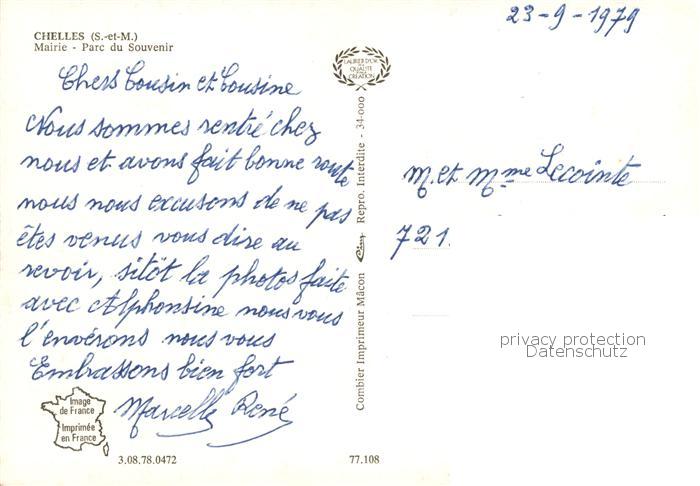 23-9-1979
CHELLES (S.-et-M.)
Mairie - Parc du Souvenir
LAURIER D'OR
DE
QUALITÉ
CRÉATION
Chers Cousin et Cousine
Nous sommes rentré chez
nous et avons fait bonne route
nous nous excusons de ne pas
êtes venus vous dire au
revoir, sitôt la photos faite
avec Alphonsine nous vous
l'enverons nous vous
Embrassons bien fort
Marcelle René
M. et Mme Lecointe
721.
Combier Imprimeur Mâcon Cim Repro. Interdite - 34-000
Image
de France
Imprimée
en France
3.08.78.0472
77.108
privacy protection
Datenschutz